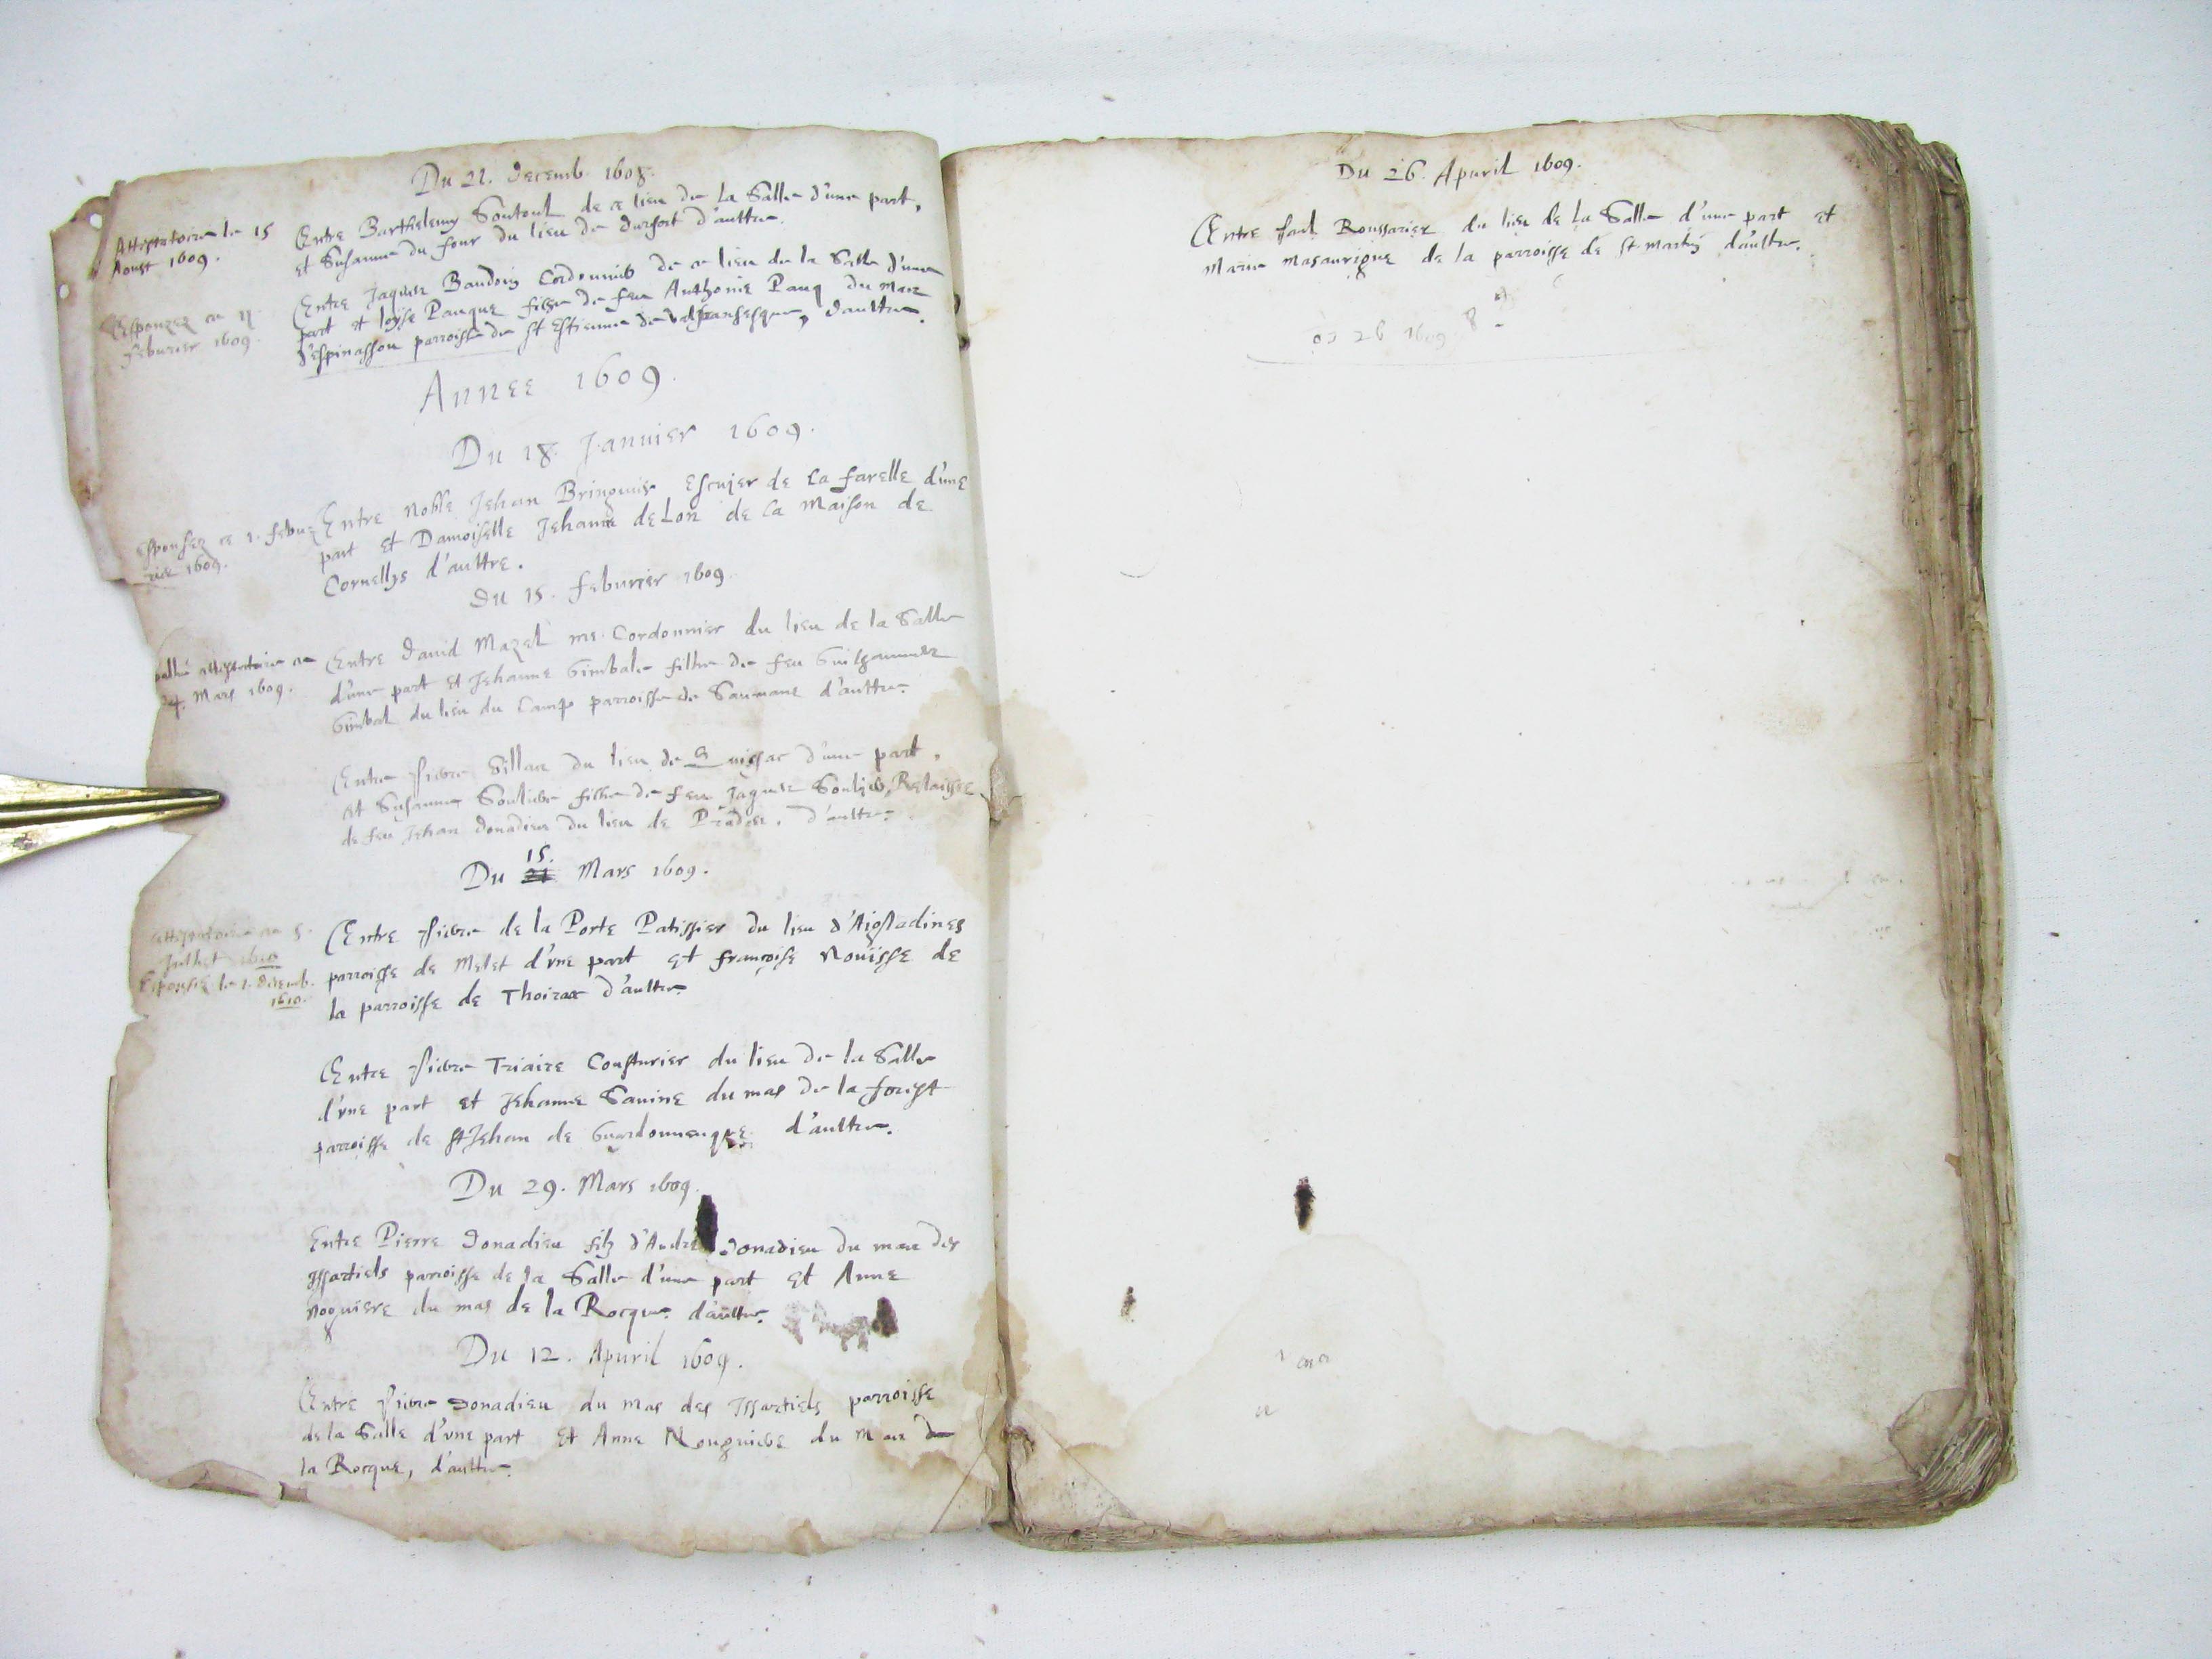 Du 21. Decemb. 1608.
Attestatoire le 15
Aoust 1609.
Entre Barthelemy Soutoul de ce lieu de La Salle d'une part,
et Susanne du four du lieu de durfort d'aultre.
Espousez ce 11
Feburier 1609.
Entre Jaques Baudoin Cordonnier de ce lieu de la Salle d'une
part et loyse Pauque fille de feu Anthonie Pauq du mas
d'espinassou parroisse de st Estienne de Valfransesque, d'aultre.
Annee 1609.
Du 18 Janvier 1609.
Espousez ce 1. Febu-
rier 1609.
Entre Noble Jehan Bringuier Escujer de La farelle d'une
part et Damoiselle Jehanne de Lon de La Maison de
Cornellys d'aultre.
Du 15. Feburier 1609.
attestatoire ce
24. Mars 1609.
Entre David Mazel me. Cordonnier du lieu de la Salle
d'une part et Jehanne Gimbale fille de feu Guilhaumes
Gimbal du lieu du Camp parroisse de Saumane d'aultre.
Entre Pierre Sillac du lieu de Quissac d'une part,
et Susanne Souliere fille de feu Jaques Soulier, Relaissee
de feu Jehan donadieu du lieu de Prades, d'aultre.
15.
Du 21 Mars 1609.
attestatoire ce 5.
Juillet 1610
Espousez le 2. decemb.
1610.
Entre Pierre de la Porte Patissier du lieu d'Aigladines
parroisse de Melet d'vne part et françoise Nouisse de
la parroisse de Thoiras d'aultre.
Entre Pierre Triaire Cousturier du lieu de la Salle
d'vne part et Jehanne Savine du mas de la forest
parroisse de st Jehan de Guardonnenque d'aultre.
Du 29. Mars 1609.
Entre Pierre Donadieu filz d'André Donadieu du mas des
yssartiels parroisse de la Salle d'une part et Anne
Noguiere du mas de la Rocque d'aultre.
Du 12. Apuril 1609.
Entre Pierre Donadieu du mas des Issartiels parroisse
de la Salle d'vne part et Anne Nouguiere du Mas de
la Rocque, d'aultre.
Du 26. Apuril 1609.
Entre Paul Roussarier du lieu de la Salle d'une part et
Marie Masaurigue de la parroisse de st martin d'aultre.
26 1609 8